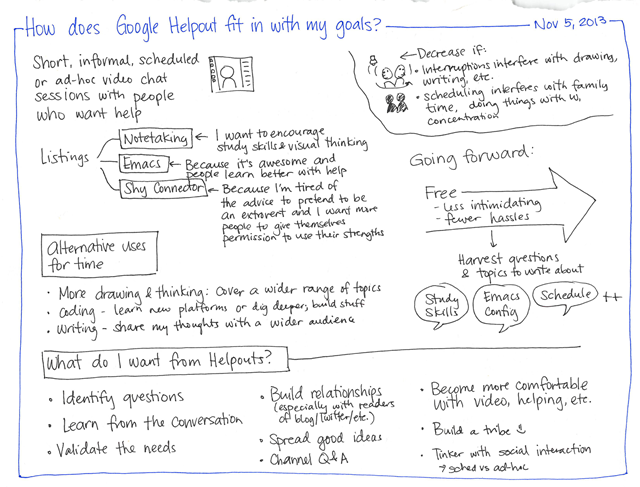 How does Google Helpout fit in with my goals?
Nov 5, 2013
Short, informal, scheduled
or ad-hoc video chat
sessions with people
who want help
← Decrease if:
• Interruptions interfere with drawing,
writing, etc.
• scheduling interferes with family
time, doing things with W,
concentration
Listings
Notetaking ← I want to encourage
study skills & visual thinking
Emacs ← Because it's awesome and
people learn better with help
Shy Connector ← Because I'm tired of
the advice to pretend to be
an extrovert and I want more
people to give themselves
permission to use their strengths
Going forward:
Free
- less intimidating
- fewer hassles
Harvest questions
& topics to write about
Study
Skills
Emacs
Config
Schedule
++
Alternative uses
for time
• More drawing & thinking: cover a wider range of topics
• Coding - learn new platforms or dig deeper, build stuff
• Writing - share my thoughts with a wider audience
What do I want from Helpouts?
• Identify questions
• Learn from the conversation
• Validate the needs
• Build relationships
(especially with readers
of blog/Twitter/etc.)
• Spread good ideas
• Channel Q&A
• Become more comfortable
with video, helping, etc.
• Build a tribe
• Tinker with social interaction
→ sched vs ad-hoc